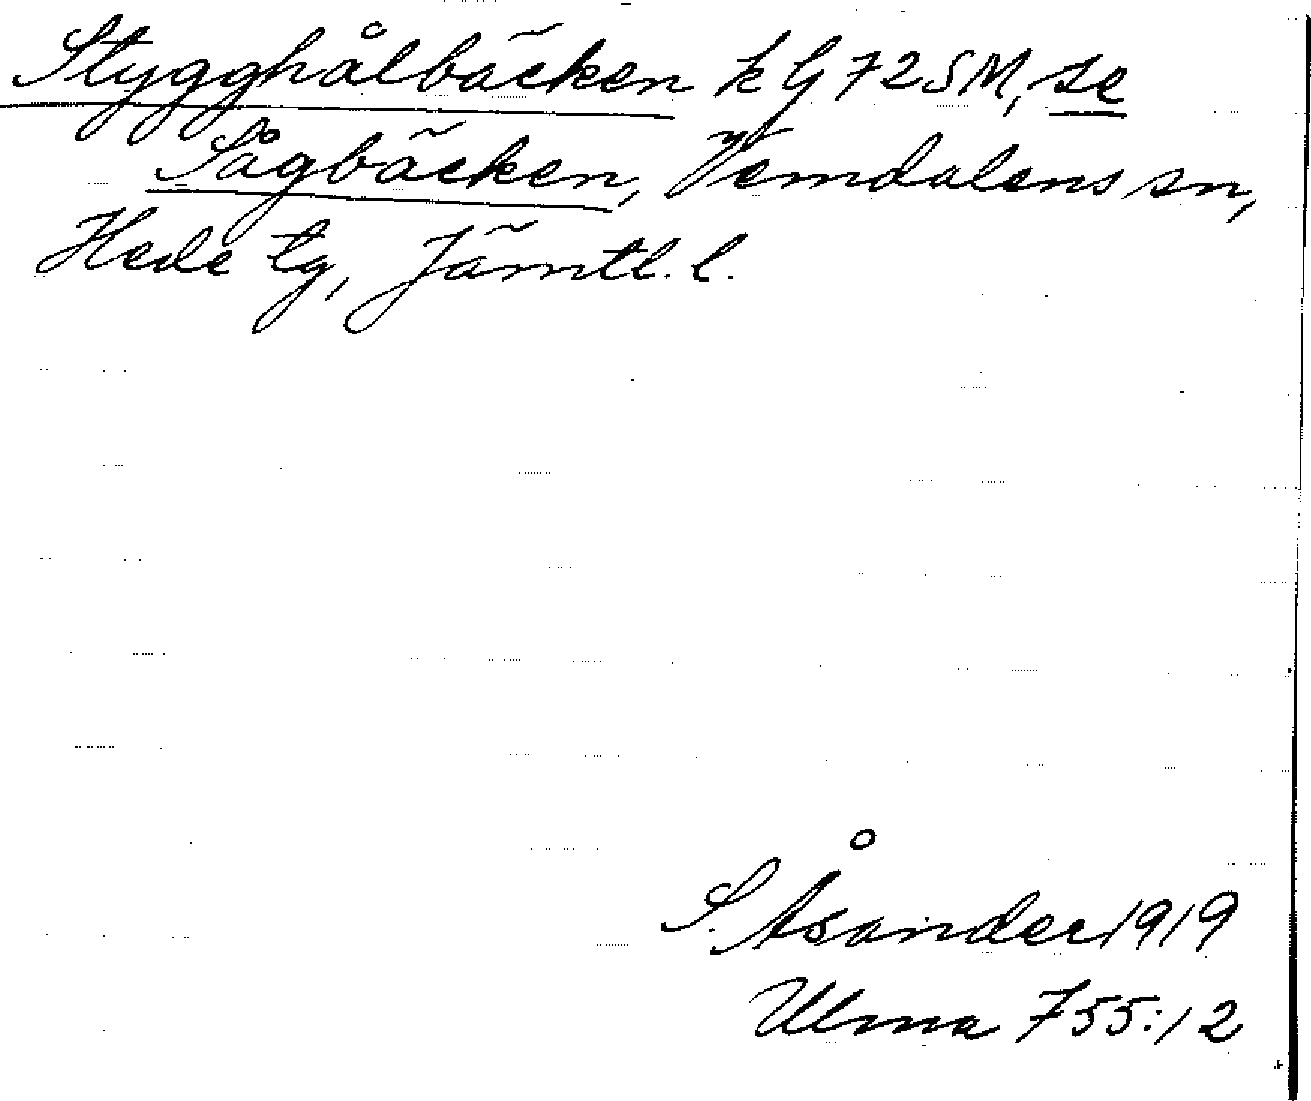 Stygghålbäcken kG72SM, se
Sågbäcken, Vemdalens sn,
Hede tg, Jämtl. l.
S. Åsander 1919
Ulma 755:12